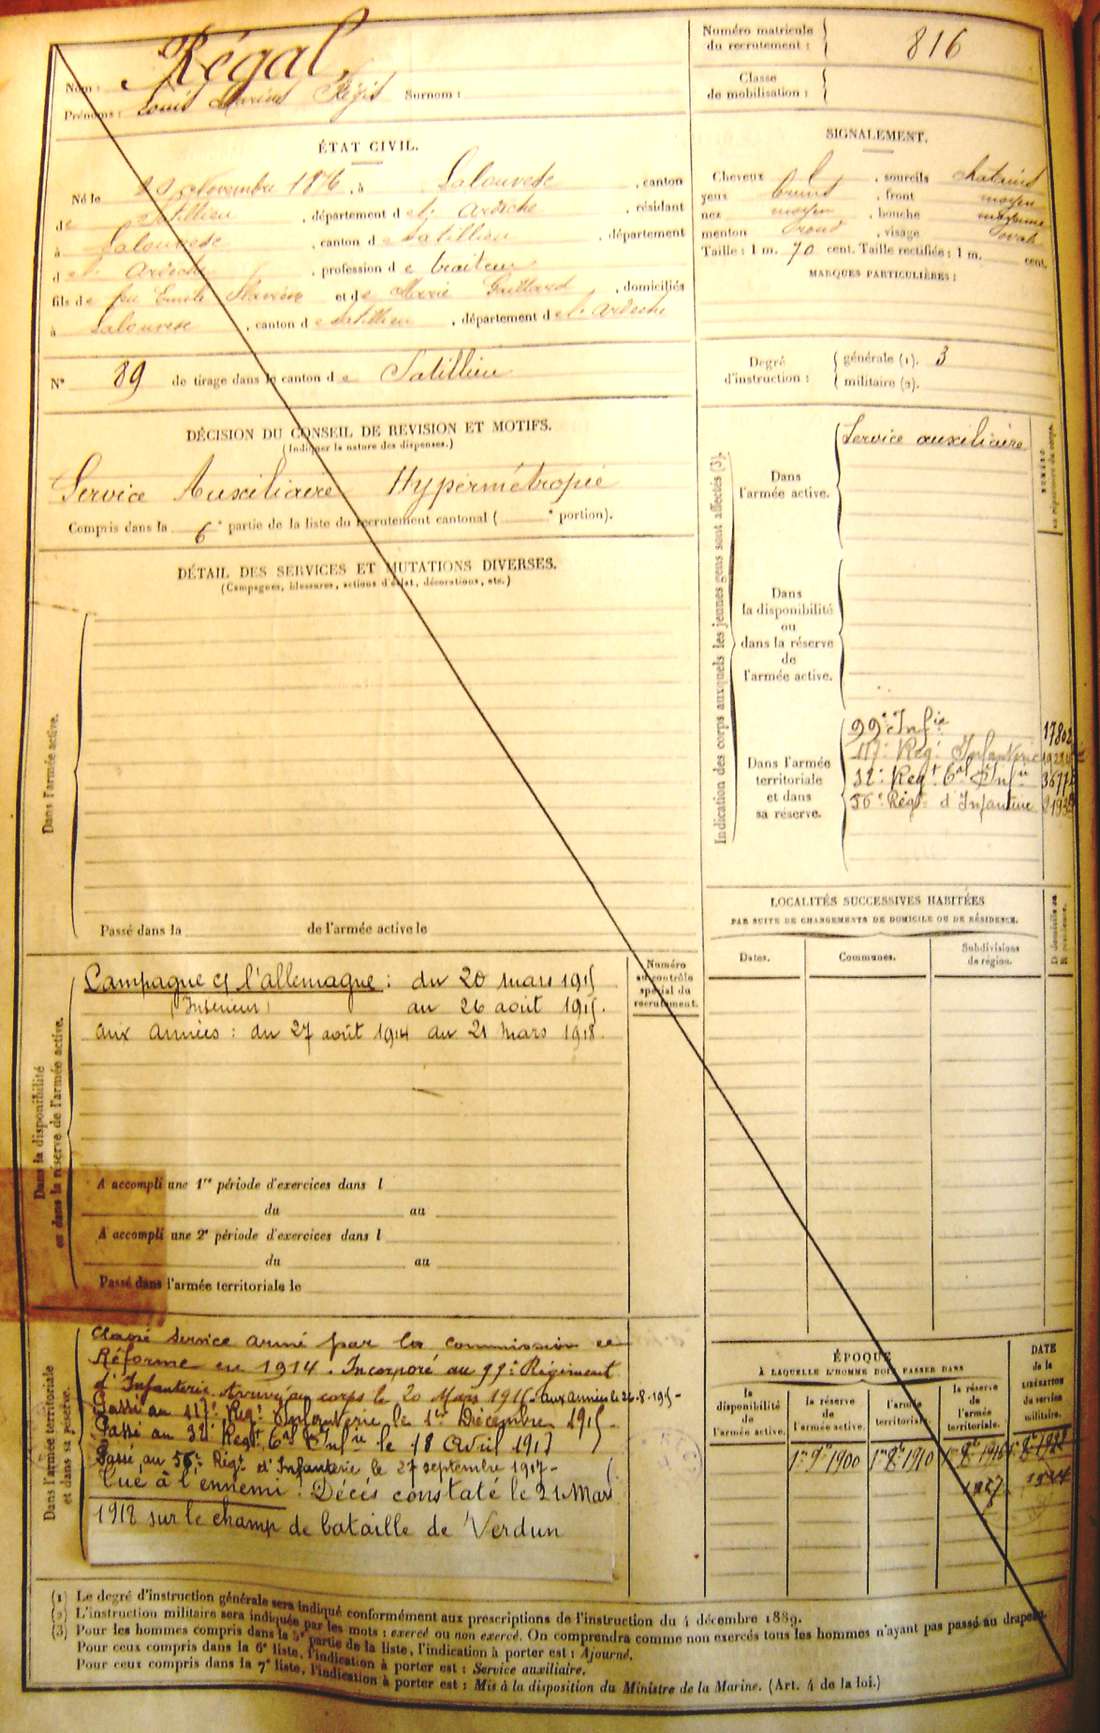 Numéro matricule
du recrutement : 816
Classe
de mobilisation :
Nom : Régal
Prénoms : Louis Marius Régis Surnom :
ÉTAT CIVIL.
Né le Novembre 1876, à Lalouvesc, canton
de Satillieu, département de l'Ardèche, résidant
à Lalouvesc, canton de Satillieu, département
de l'Ardèche, profession de traiteur
fils de feu Emile Marius et de Marie Gaillard, domiciliés
à Lalouvesc, canton de Satillieu, département de l'Ardèche
N° 89 de tirage dans le canton de Satillieu
SIGNALEMENT.
Cheveux, sourcils chatains
yeux bruns, front moyen
nez moyen, bouche moyenne
menton rond, visage ovale
Taille : 1 m. 70 cent. Taille rectifiée : 1 m. cent.
MARQUES PARTICULIÈRES :
Degré
d'instruction :
générale (1). 3
militaire (2).
DÉCISION DU CONSEIL DE REVISION ET MOTIFS.
(Indiquer la nature des dispenses.)
Service Auxiliaire Hypermétropie
Compris dans la 6e partie de la liste du recrutement cantonal ( e portion).
DÉTAIL DES SERVICES ET MUTATIONS DIVERSES.
(Campagnes, blessures, actions d'éclat, décorations, etc.)
Dans l'armée active.
Passé dans la de l'armée active le
Indication des corps auxquels les jeunes gens sont affectés (3).
Dans
l'armée active.
Service auxiliaire
Dans
la disponibilité
ou
dans la réserve
de
l'armée active.
Dans l'armée
territoriale
et dans
sa réserve.
99e Infie
117e Regt Infanterie
32e Regt Cal Infie
56e Régt d'Infanterie
LOCALITÉS SUCCESSIVES HABITÉES
PAR SUITE DE CHANGEMENTS DE DOMICILE OU DE RÉSIDENCE.
Dates.
Communes.
Subdivisions
de région.
Numéro
au contrôle
spécial du
recrutement.
Dans la disponibilité
ou dans la réserve de l'armée active.
Campagne c/ l'allemagne : du 20 mars 1915
(Intérieur) au 26 août 1915.
aux armées : du 27 août 1914 au 21 mars 1918.
A accompli une 1re période d'exercices dans l
du au
A accompli une 2e période d'exercices dans l
du au
Passé dans l'armée territoriale le
Dans l'armée territoriale
et dans sa réserve.
Classé Service armé par la commission de
Réforme en 1914. Incorporé au 99e Régiment
d'Infanterie. Arrivé au corps le 20 Mars 1915. aux armées le 26.8.1915
Passé au 117e Regt Infanterie le 1er Décembre 1915
Passé au 32e Regt Cal Infie le 18 Avril 1917
Passé au 56e Régt d'Infanterie le 27 septembre 1917
Tué à l'ennemi. Décès constaté le 21 Mars
1918 sur le champ de bataille de Verdun
ÉPOQUE
À LAQUELLE L'HOMME DOIT PASSER DANS
la
disponibilité
de
l'armée active.
la réserve
de
l'armée active.
l'armée
territoriale.
la réserve
de
l'armée
territoriale.
DATE
de la
LIBÉRATION
du service
militaire.
1er 9bre 1900
(1) Le degré d'instruction générale sera indiqué conformément aux prescriptions de l'instruction du 4 décembre 1889.
(2) L'instruction militaire sera indiquée par les mots : exercé ou non exercé. On comprendra comme non exercés tous les hommes n'ayant pas passé au drapeau.
(3) Pour les hommes compris dans la 5e partie de la liste, l'indication à porter est : Ajourné.
Pour ceux compris dans la 6e liste, l'indication à porter est : Service auxiliaire.
Pour ceux compris dans la 7e liste, l'indication à porter est : Mis à la disposition du Ministre de la Marine. (Art. 4 de la loi.)